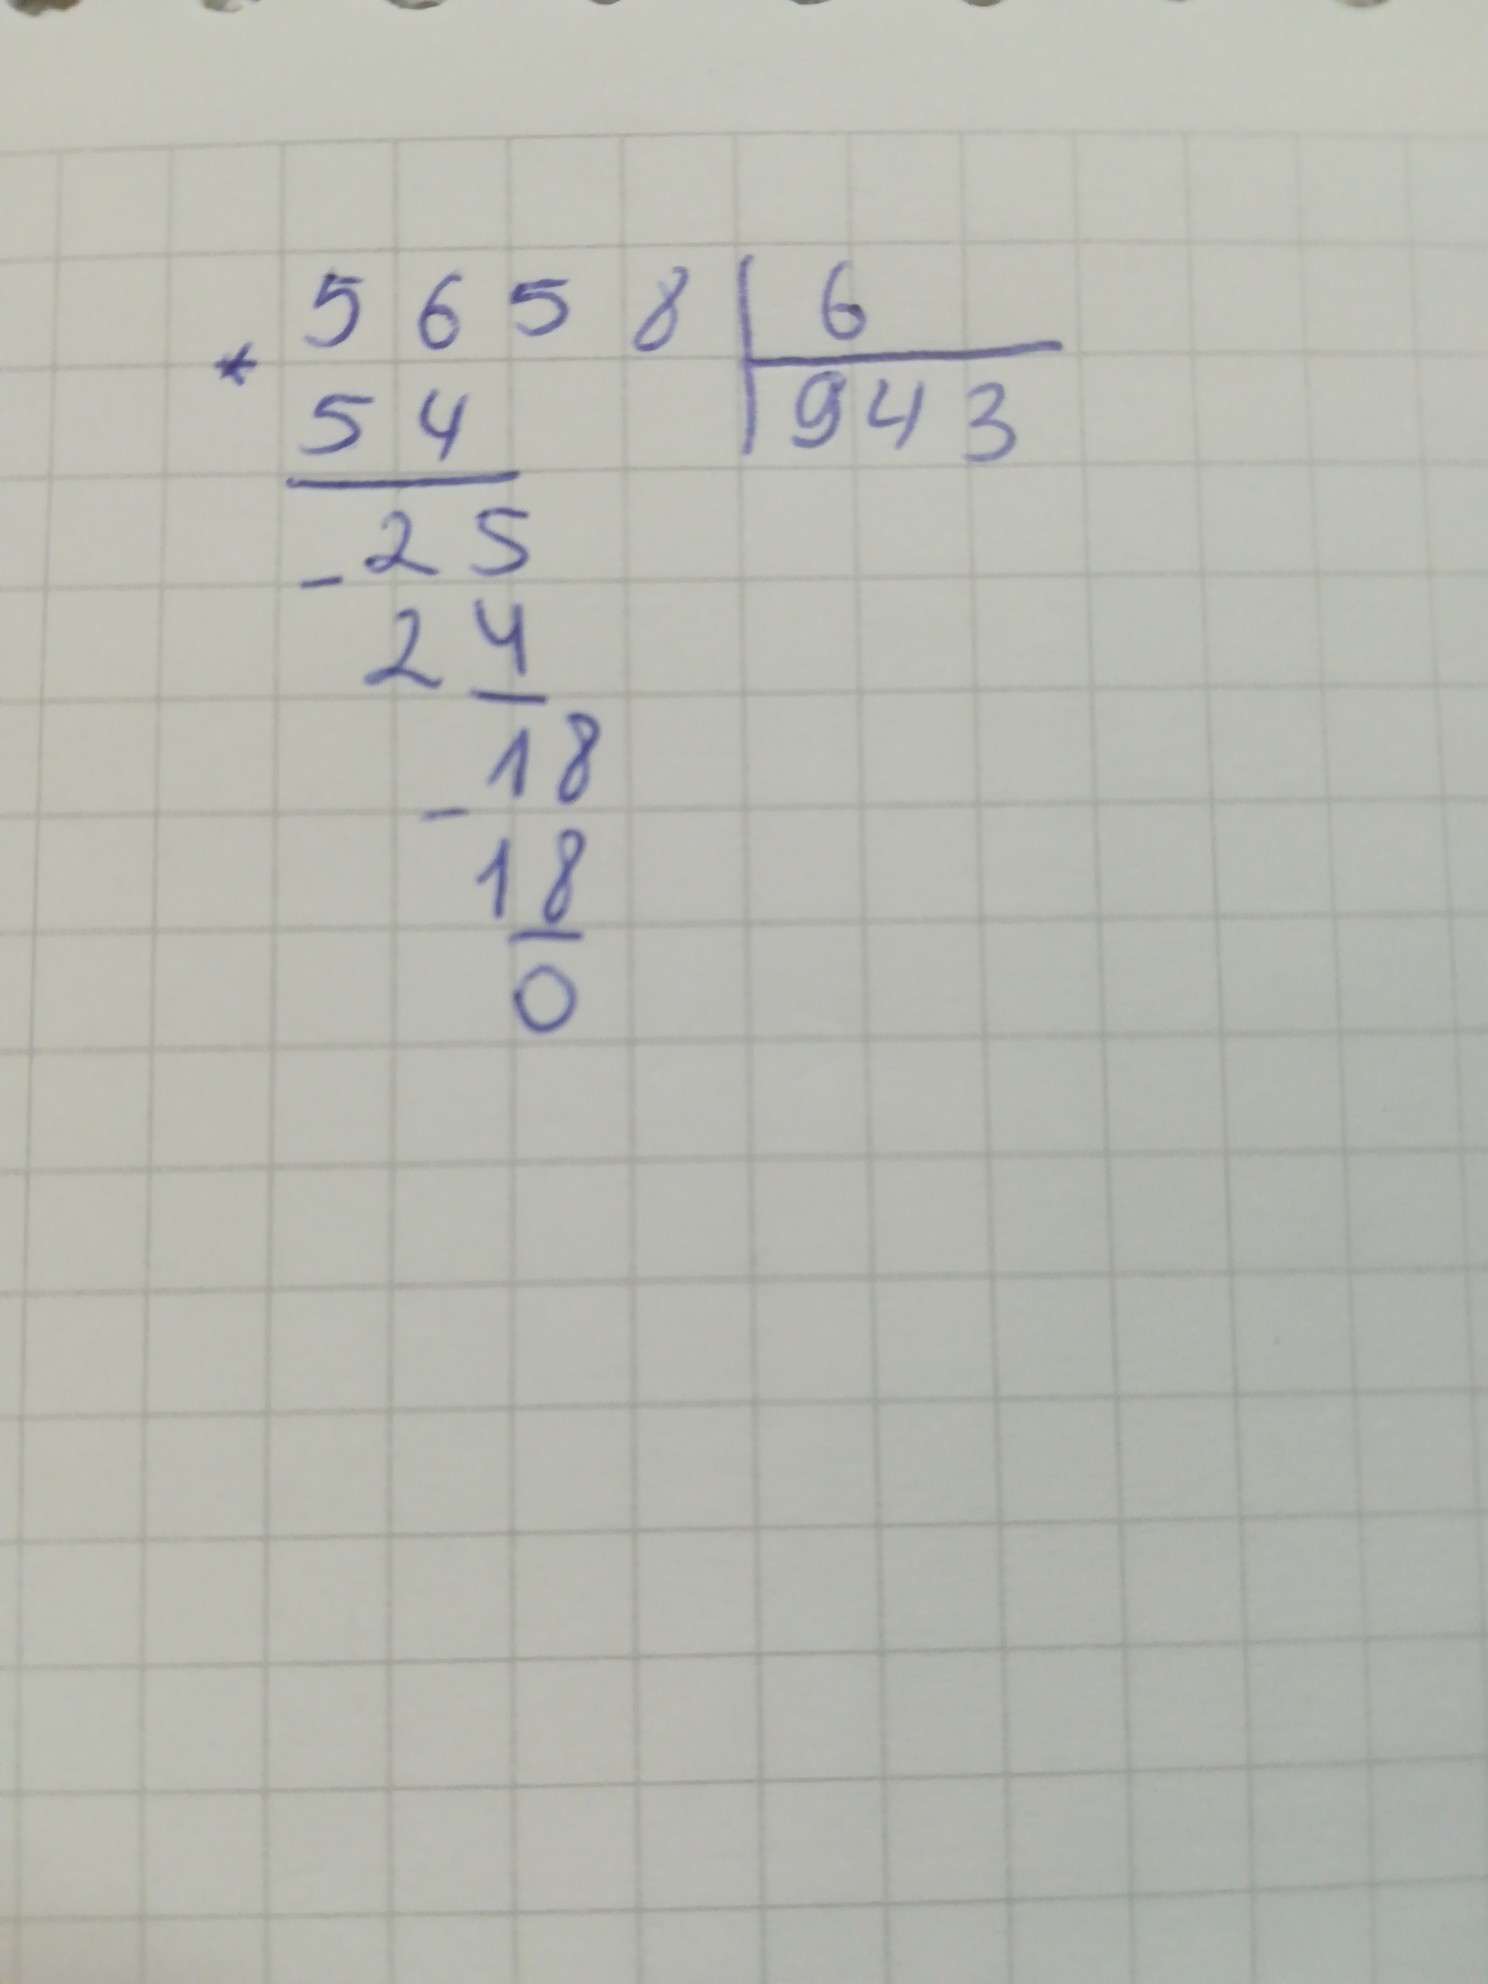 5658 | 6
* 54 | 943
- 25
24
- 18
18
0